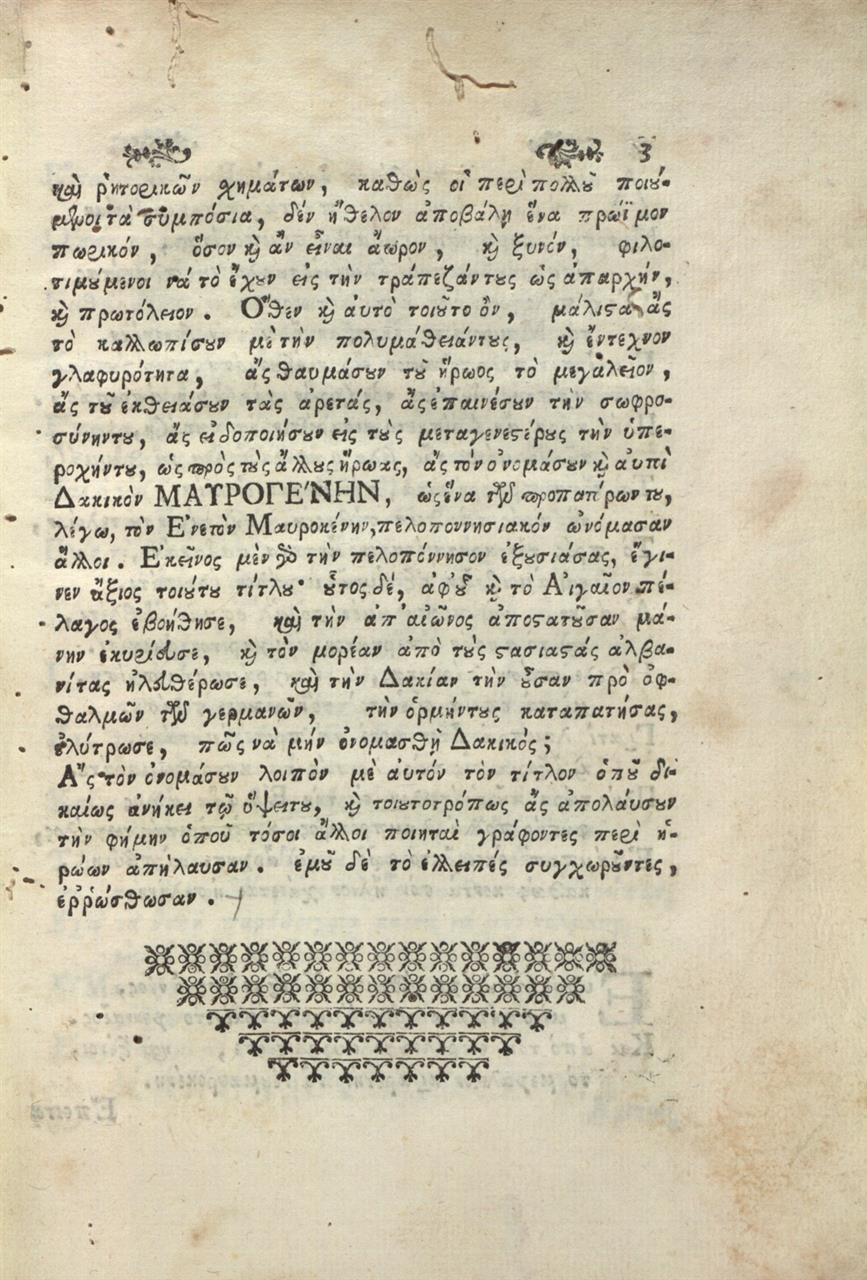 3
καὶ ῥητορικῶν χημάτων, καθὼς οἱ περὶ πολλοῦ ποιού-
μενοι τὰ συμπόσια, δέν ἤθελον ἀποβάλῃ ἕνα πρώϊμον
πωρικόν, ὅσον κỳ ἂν εἶναι ἄωρον, κỳ ξυνόν, φιλο-
τιμούμενοι νά τὸ ἔχουν εἰς τὴν τράπεζάντους ὡς ἀπαρχήν,
κỳ πρωτόλειον. Ὅθεν κỳ ἀυτὸ τοιοῦτο ὂν, μάλιστα ἂς
τὸ καλλωπίσουν μὲ τὴν πολυμάθειάντους, κỳ ἔντεχνον
γλαφυρότητα, ἂς θαυμάσουν τοῦ ἥρωος τὸ μεγαλεῖον,
ἂς τοῦ ἐκθειάσουν τὰς ἀρετάς, ἂς ἐπαινέσουν τὴν σωφρο-
σύνηντου, ἂς εἰδοποιήσουν εἰς τοὺς μεταγενεστέρους τὴν ὑπε-
ροχήντου, ὡς πρὸς τοὺς ἄλλους ἥρωας, ἂς τὸν ὀνομάσουν κỳ ἀυτοὶ
Δακικὸν ΜΑΥΡΟΓΕΝΗΝ, ὡς ἕνα τῶν προπατόρωντου,
λέγω, τὸν Ἐνετὸν Μαυροκένην, πελοποννησιακόν ὠνόμασαν
ἄλλοι. Ἐκεῖνος μὲν γὰρ τὴν πελοπόννησον ἐξουσιάσας, ἔγι-
νεν ἄξιος τοιούτου τίτλου· οὗτος δέ, ἀφ' οὗ κỳ τὸ Αἰγαῖον πέ-
λαγος ἐβοήθησε, καὶ τὴν ἀπ' αἰῶνος ἀποστατοῦσαν μά-
νην ἐκυρίευσε, κỳ τὸν μορέαν ἀπὸ τοὺς στασιαστάς ἀλβα-
νίτας ἠλευθέρωσε, καὶ τὴν Δακίαν τὴν οὖσαν πρὸ ὀφ-
θαλμῶν τῶν γερμανῶν, τὴν ὁρμήντους καταπατήσας,
ἐλύτρωσε, πῶς νὰ μήν ὀνομασθῇ Δακικὸς;
Ἂς τὸν ὀνομάσουν λοιπὸν μὲ ἀυτόν τὸν τίτλον ὁποῦ δι-
καίως ἀνήκει τῷ ὕψειτου, κỳ τοιουτοτρόπως ἂς ἀπολάυσουν
τὴν φήμην ὁποῦ τόσοι ἄλλοι ποιηταὶ γράφοντες περὶ ἡ-
ρώων ἀπήλαυσαν. ἐμοῦ δὲ τὸ ἐλλειπές συγχωροῦντες,
ἐῤῥώσθωσαν.